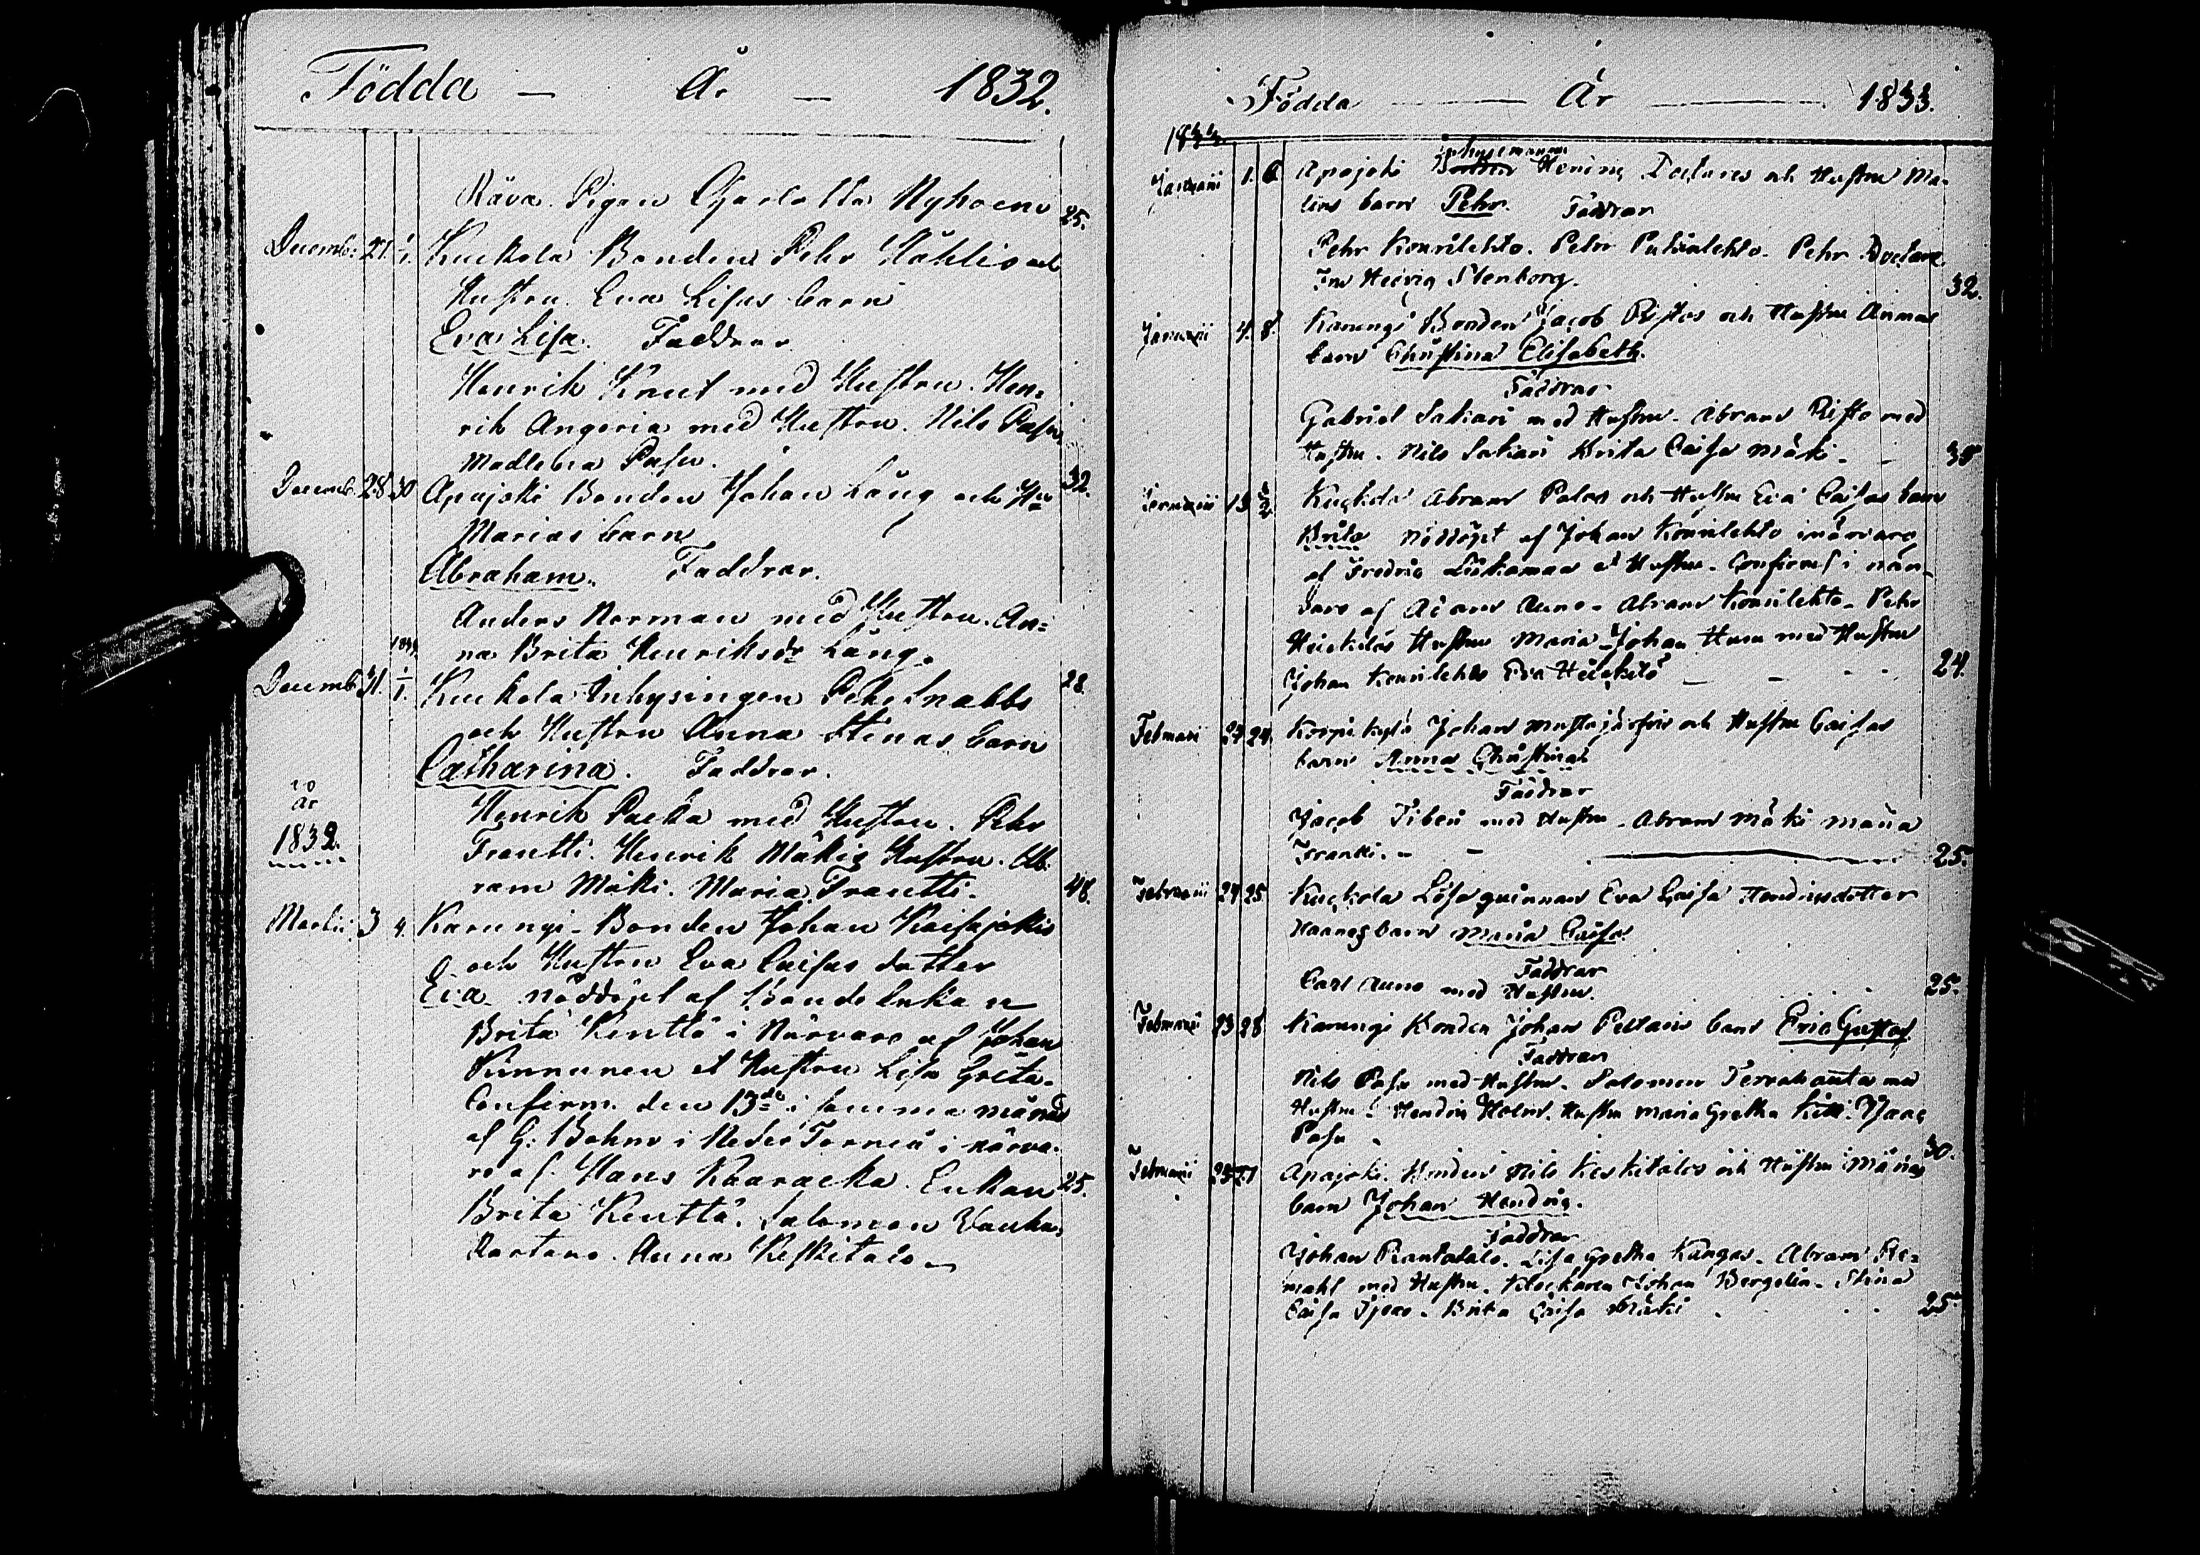 Födda — År — 1832.
Räva. Pigan Charlotta Nyholm 25.
Decemb: 27. 1/1. Kuckola Bonden Pehr Kåhlis och
Hustru Eva Lisas barn
Eva Lisa. Faddrar
Henrik Knut med Hustru. Hen=
rik Angeria med Hustru. Nils Pasu
Madlena Pasu. 32.
Decemb. 28 30 Apajoki Bonden Johan Lång och Hu
Marias barn
Abraham. Faddrar.
Anders Norman med Hustru. An=
na Brita Henriksdr Lång. 28.
Decemb 31. 1/1. Kuckola Inhysingen Pehr Snabbs
och Hustru Anna Stinas barn
Catharina. Faddrar.
Henrik Packa med Hustru. Pehr
År
1832.
Frantti. Henrik Mäkis Hustru. Ab.
ram Mäki. Maria Frantti. 48.
Martii 3 4. Karungi Bonden Johan Kaisajokis
och Hustru Eva Caisas dotter
Eva nöddöpt af Bonde Enkan
Brita Kenttä i Närvaro af Johan
Kinnunen et Hustru Lisa Greta.
Confirm. den 13de i samma månad
af G: Bohm i Neder Torneå i närva-
ro af Hans Kaaracka. Enkan 25.
Brita Kenttä. Salomon
Anna Keskitalo

Födda — År — 1833.
1833.
Januarii 1. 6 Apajoki Henric och Hustru Ma-
lins barn Pehr. Faddrar
Pehr Kourilehto. Pehr Pehr
Hedvig Stenborg. 32.
Januarii 4. 8 Karungi Bonden Jacob Ristos och Hustru Annas
barn Christina Elisabeth.
Faddrar
Gabriel Sakari med Hustru. Abram Risto med
Hustru. Nils Sakari Brita Caisa Mäki. 35
Januarii 13 Kuckola Abram Palos och Hustru Eva Caisas barn
Brita nöddöpt af Johan Kourilehto i närvaro
af Fredric et Hustru. Confirmet i när-
varo af Adam Auno. Abram Kourilehto. Pehr
Hustru Maria. Johan med Hustru
Johan Kourilehto Eva 24.
Februari 24. Korpikylä Johan Mustajärfvis och Hustru Caisas
barn Anna Christina
Faddrar
Jacob med Hustru. Abram Mäki Maria
Frantti. 25.
Februarii 24 25 Kuckola Lösa quinnan Eva Caisa Hendricsdotter
barn Maria Caisa.
Faddrar
Carl Auno med Hustru. 25.
Februarii 23 28 Karungi Bonden Johan barn Eric Gustaf
Faddrar
Nils Pasu med Hustru. Salomon med
Hustru. Hendric Holm. Hustru Maria Gretha
Pasu 30.
Februarii Apajoki Bonden Nils Keskitalos och Hustru Marias
barn Johan Hendric.
Faddrar
Johan Rantatalo. Lisa Gretha Kangas. Abram
med Hustru. Klockaren Johan Bergelin. Stina
Caisa Brita Caisa Mäki 25